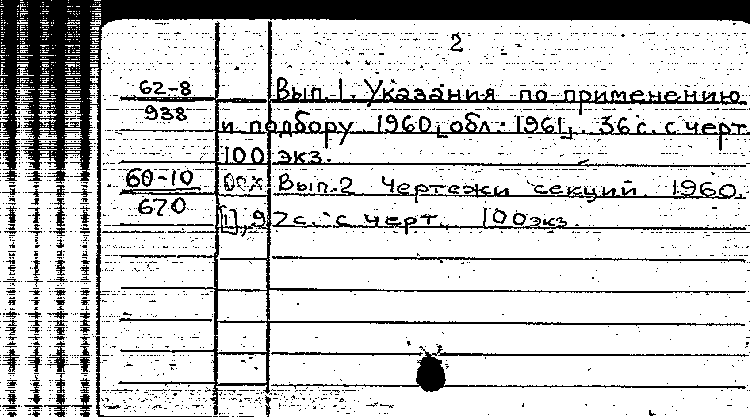 2
62-8 Вып.1. Указания по применению
938 и подбору 1960, обл. 1961,. 36 с. с черт
100 экз.
60-10 Вып.2 Чертежи секций. 1960.
670 [1], 97 с. с черт. 100 экз.